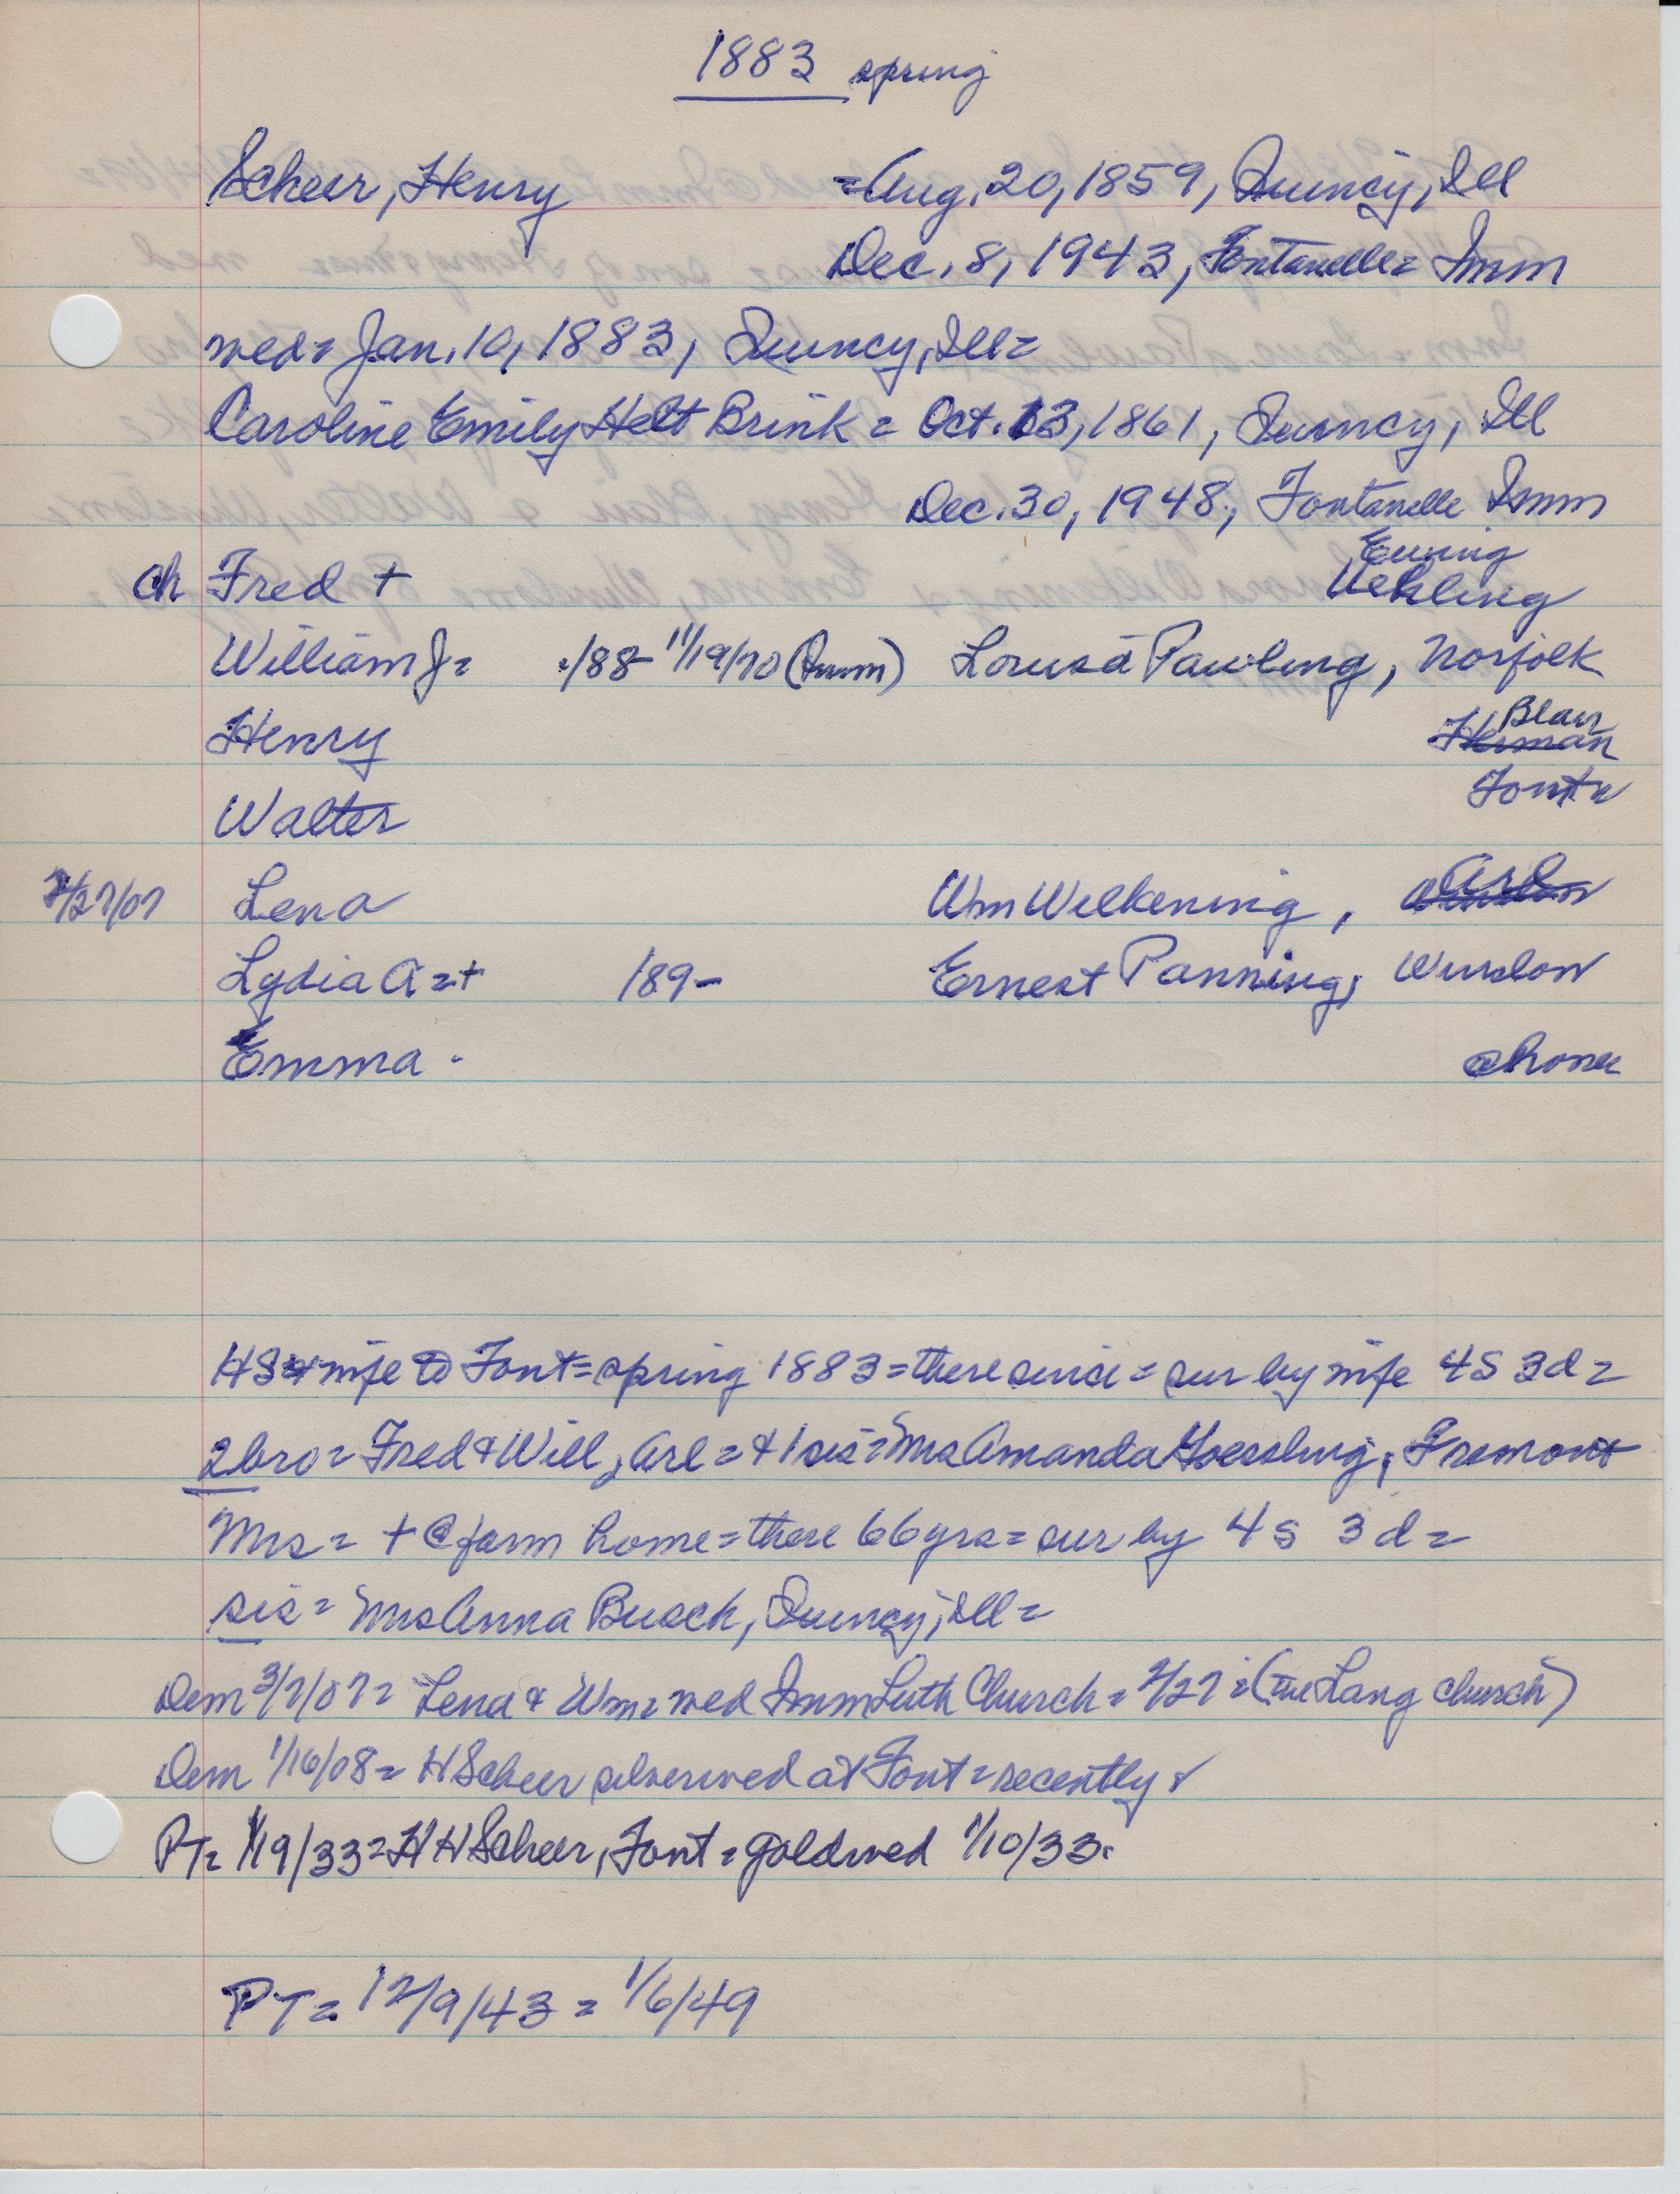 1883 spring
Scheer, Henry = Aug. 20, 1859, Quincy, Ill
Dec. 8, 1943, Fontanelle = Imm
wed = Jan. 10, 1883, Quincy, Ill =
Caroline Emily Helt Brink = Oct. 13, 1861, Quincy, Ill
Dec. 30, 1948, Fontanelle Imm
Ewing
ch Fred + Uehling
William J = 188- 11/19/70 (Imm) Louisa Pawling, Norfolk
Blair
Henry Herman
Walter Font
2/27/07 Lena Wm Wilkening, Arl
Lydia A = + 189- Ernest Panning, Winslow
Emma - @ home
HS & wife to Font = spring 1883 = there since = sur by wife 4S 3d =
2 bro = Fred & Will, Arl = & 1 sis = Mrs Amanda Goessling, Fremont
Mrs = + @ farm home = there 66 yrs = sur by 4 S 3 d =
sis = Mrs Anna Busch, Quincy, Ill =
Dem 3/7/07 = Lena & Wm = wed Imm Luth Church = 2/27 = (the Lang church)
Dem 1/16/08 = H Scheer silverwed at Font = recently
PT = 1/19/33 = H H Scheer, Font = goldwed 1/10/33.
PT = 12/9/43 = 1/6/49